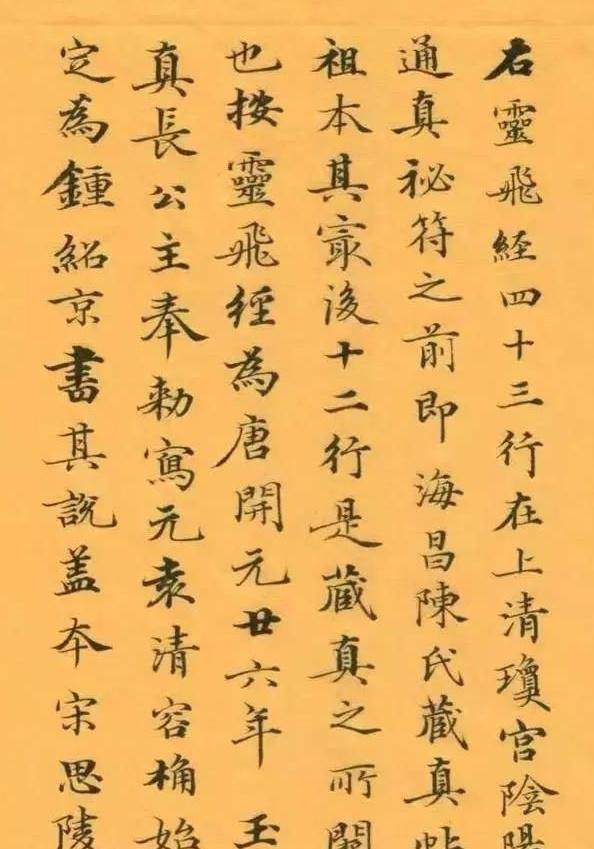 右靈飛經四十三行在上清瓊宮陰陽
通真祕符之前即海昌陳氏藏真帖
祖本其㝡後十二行是藏真之所闕
也按靈飛經為唐開元廿六年玉
真長公主奉勑寫元袁清容桷始
定為鍾紹京書其說蓋本宋思陵